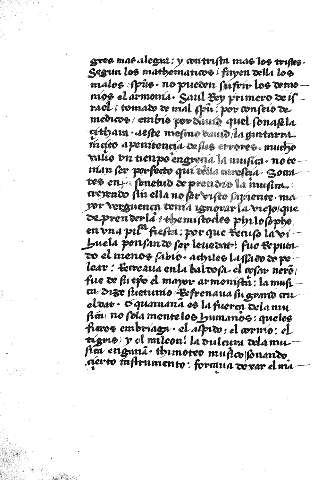 gres mas alegra: y contrista mas los tristes.
Segun los mathematicos: fuyen della los
malos spũs. no pueden sufrir los demo
nios el armonia. Saul Rey primero de is
rael: tomado de mal spũ: por consejo de
medicos: embio por dauid que sonase la
cithara. aeste mesmo dauid, la guitarra
a penitencia de sus errores. mucho
valio un tiempo en grecia la musica. no te
nian ser perfecto qui della carescia. Socra
tes en senetud de prendio la musica
creyendo sin ella no ser visto sapiente. ma
yor verguença tenia ignorar la viejo, que
de prenderla. themistocles philosopho
en vna fiesta: por que Recuso la vi
huela pensando ser leuedat: fue Reputa
do el menos sabio. achiles lassado de pe
lear: Retreaua en la el cesar nero:
fue de el mayor armonista: la musi
ca dize suetonio Refrenaua su grand cru
eldat. O quamaña es la fuerça de la mu
sica: no sola mente los humanos: que les
fieros embriaga. el aspido: el: el
tigris: y el: la dulçura de la mu
sica engaña. thimoteo musico, sonando
cierto instrumento: dexar el ma